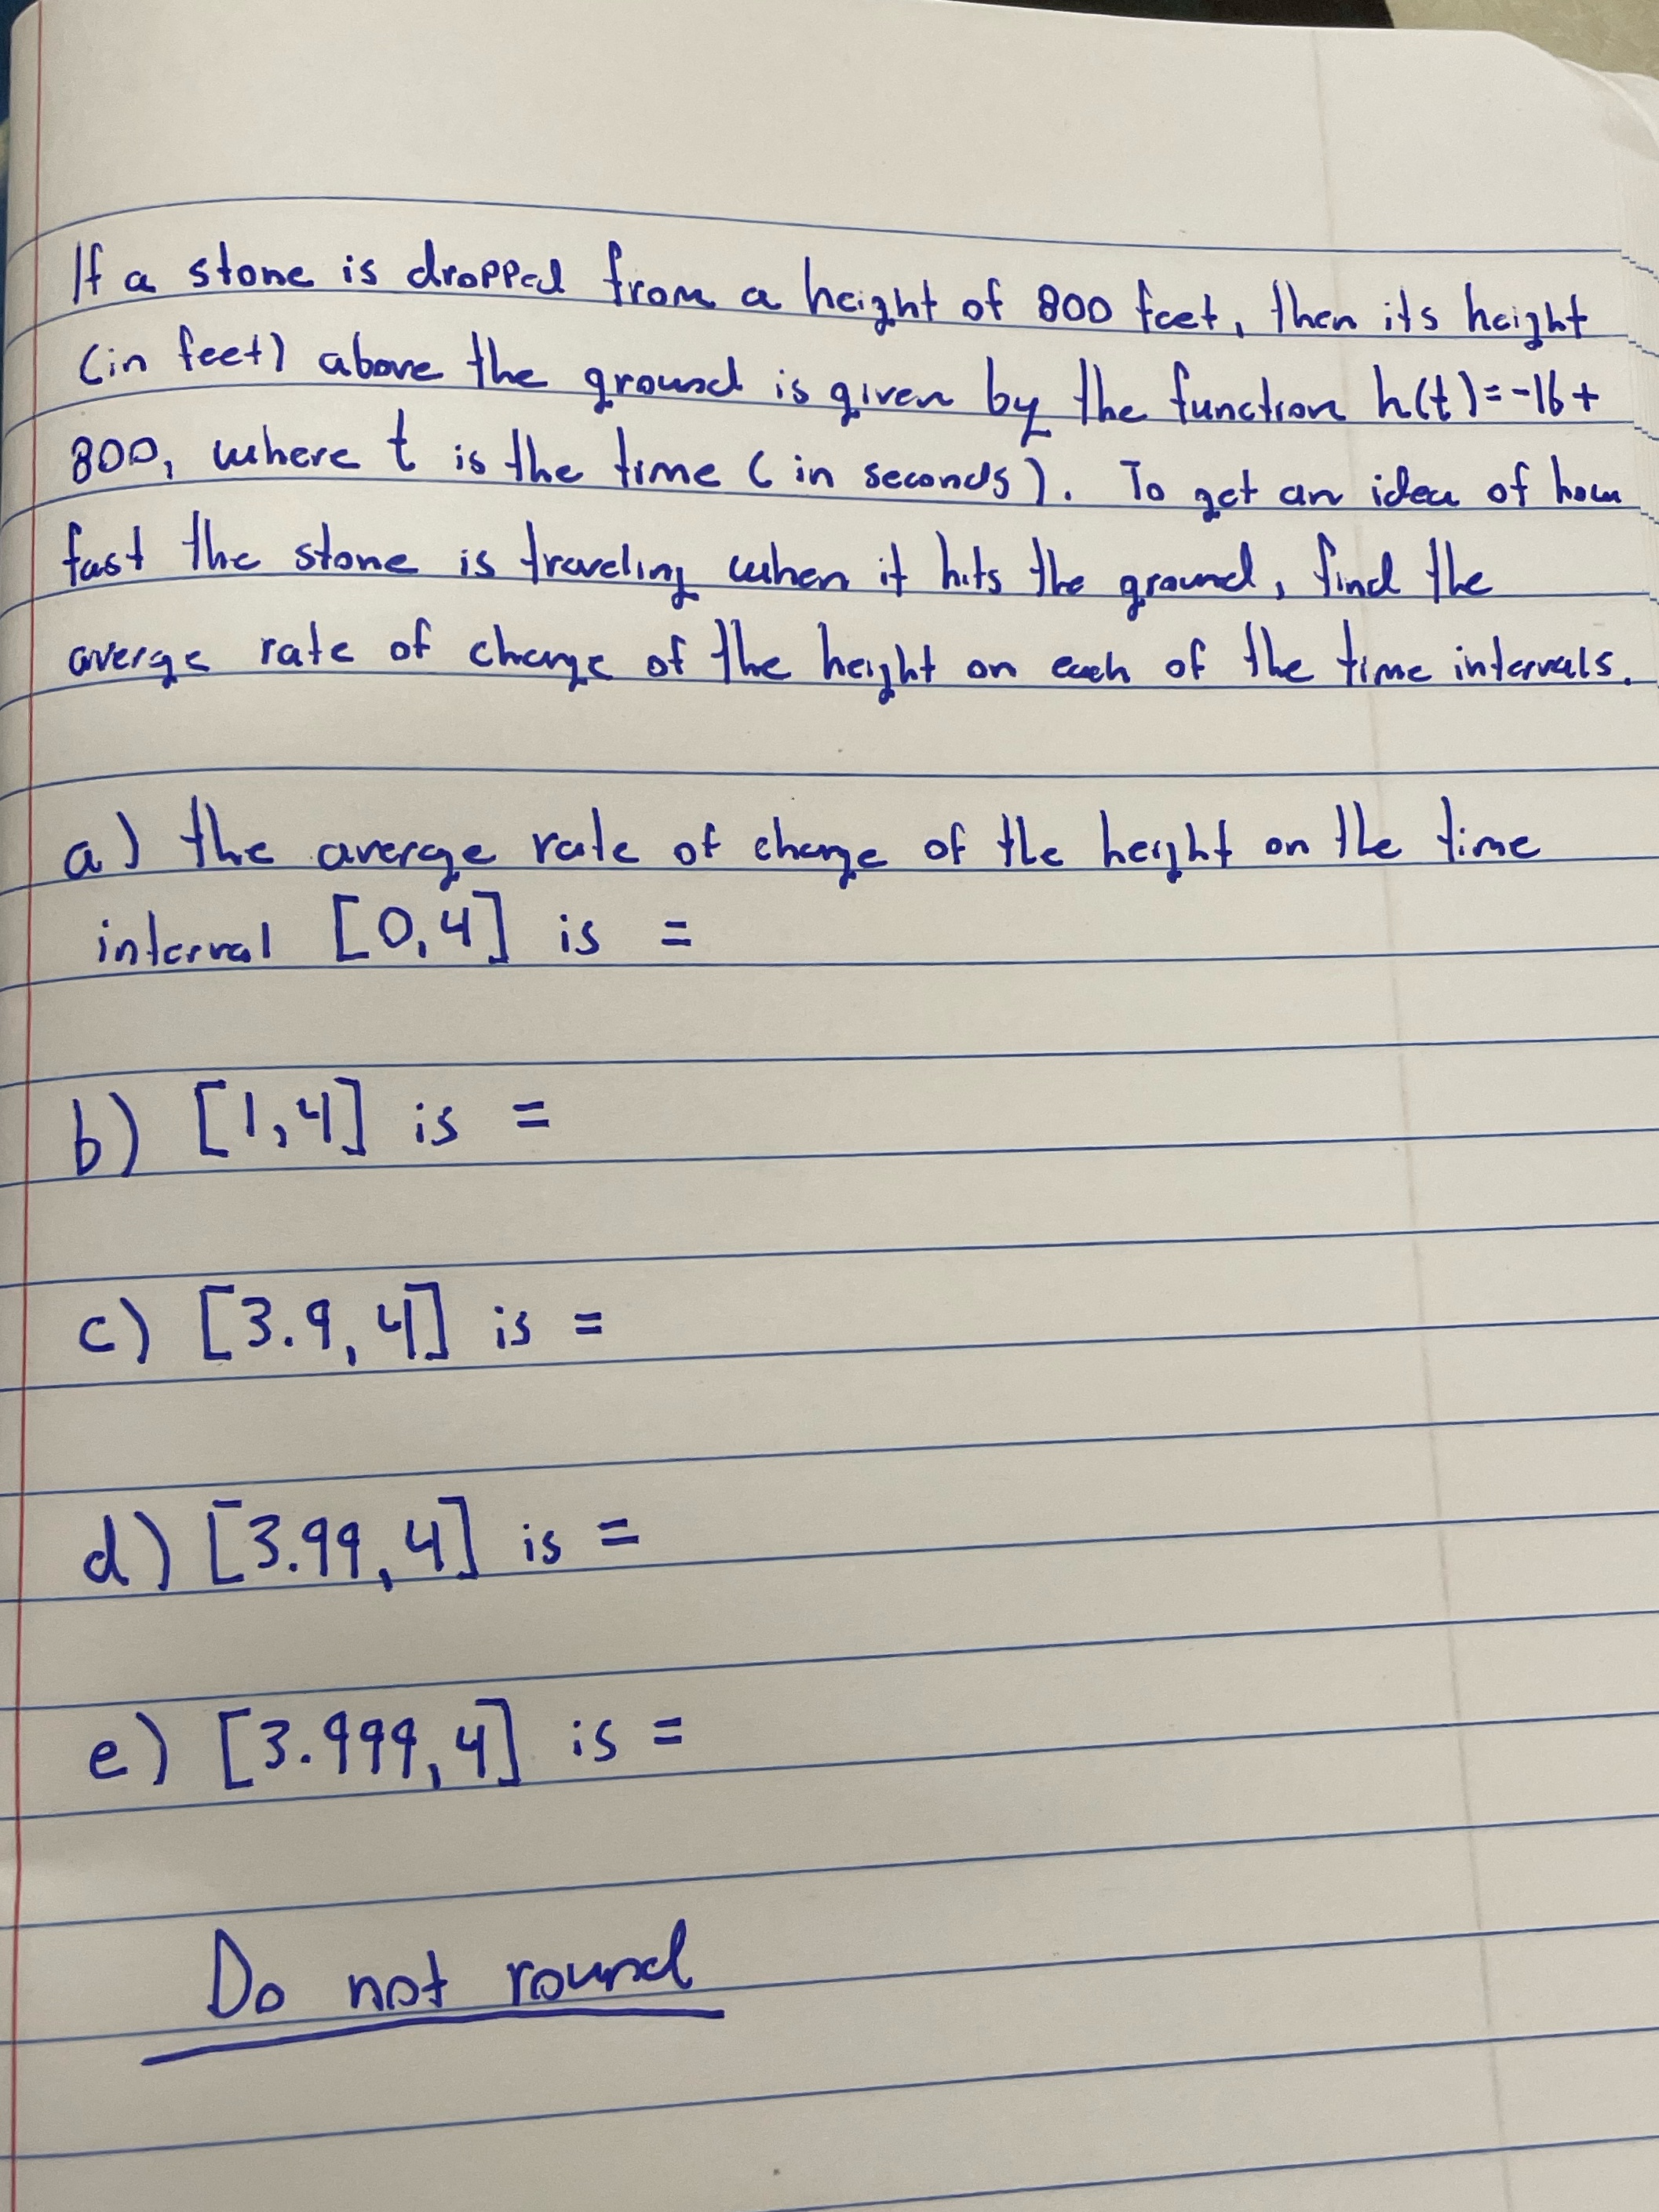 If a stone is dropped from a height of 800 feet, then its height
(in feet) above the ground is given by the function h(t)=-16+
800, where t is the time (in seconds). To get an idea of how
fast the stone is traveling when it hits the ground, find the
averge rate of change of the height on each of the time intervals.
a) the averge rate of change of the height on the time
interval [0,4] is =
b) [1,4] is =
c) [3.9,4] is =
d) [3.99,4] is =
e) [3.999,4] is =
Do not round